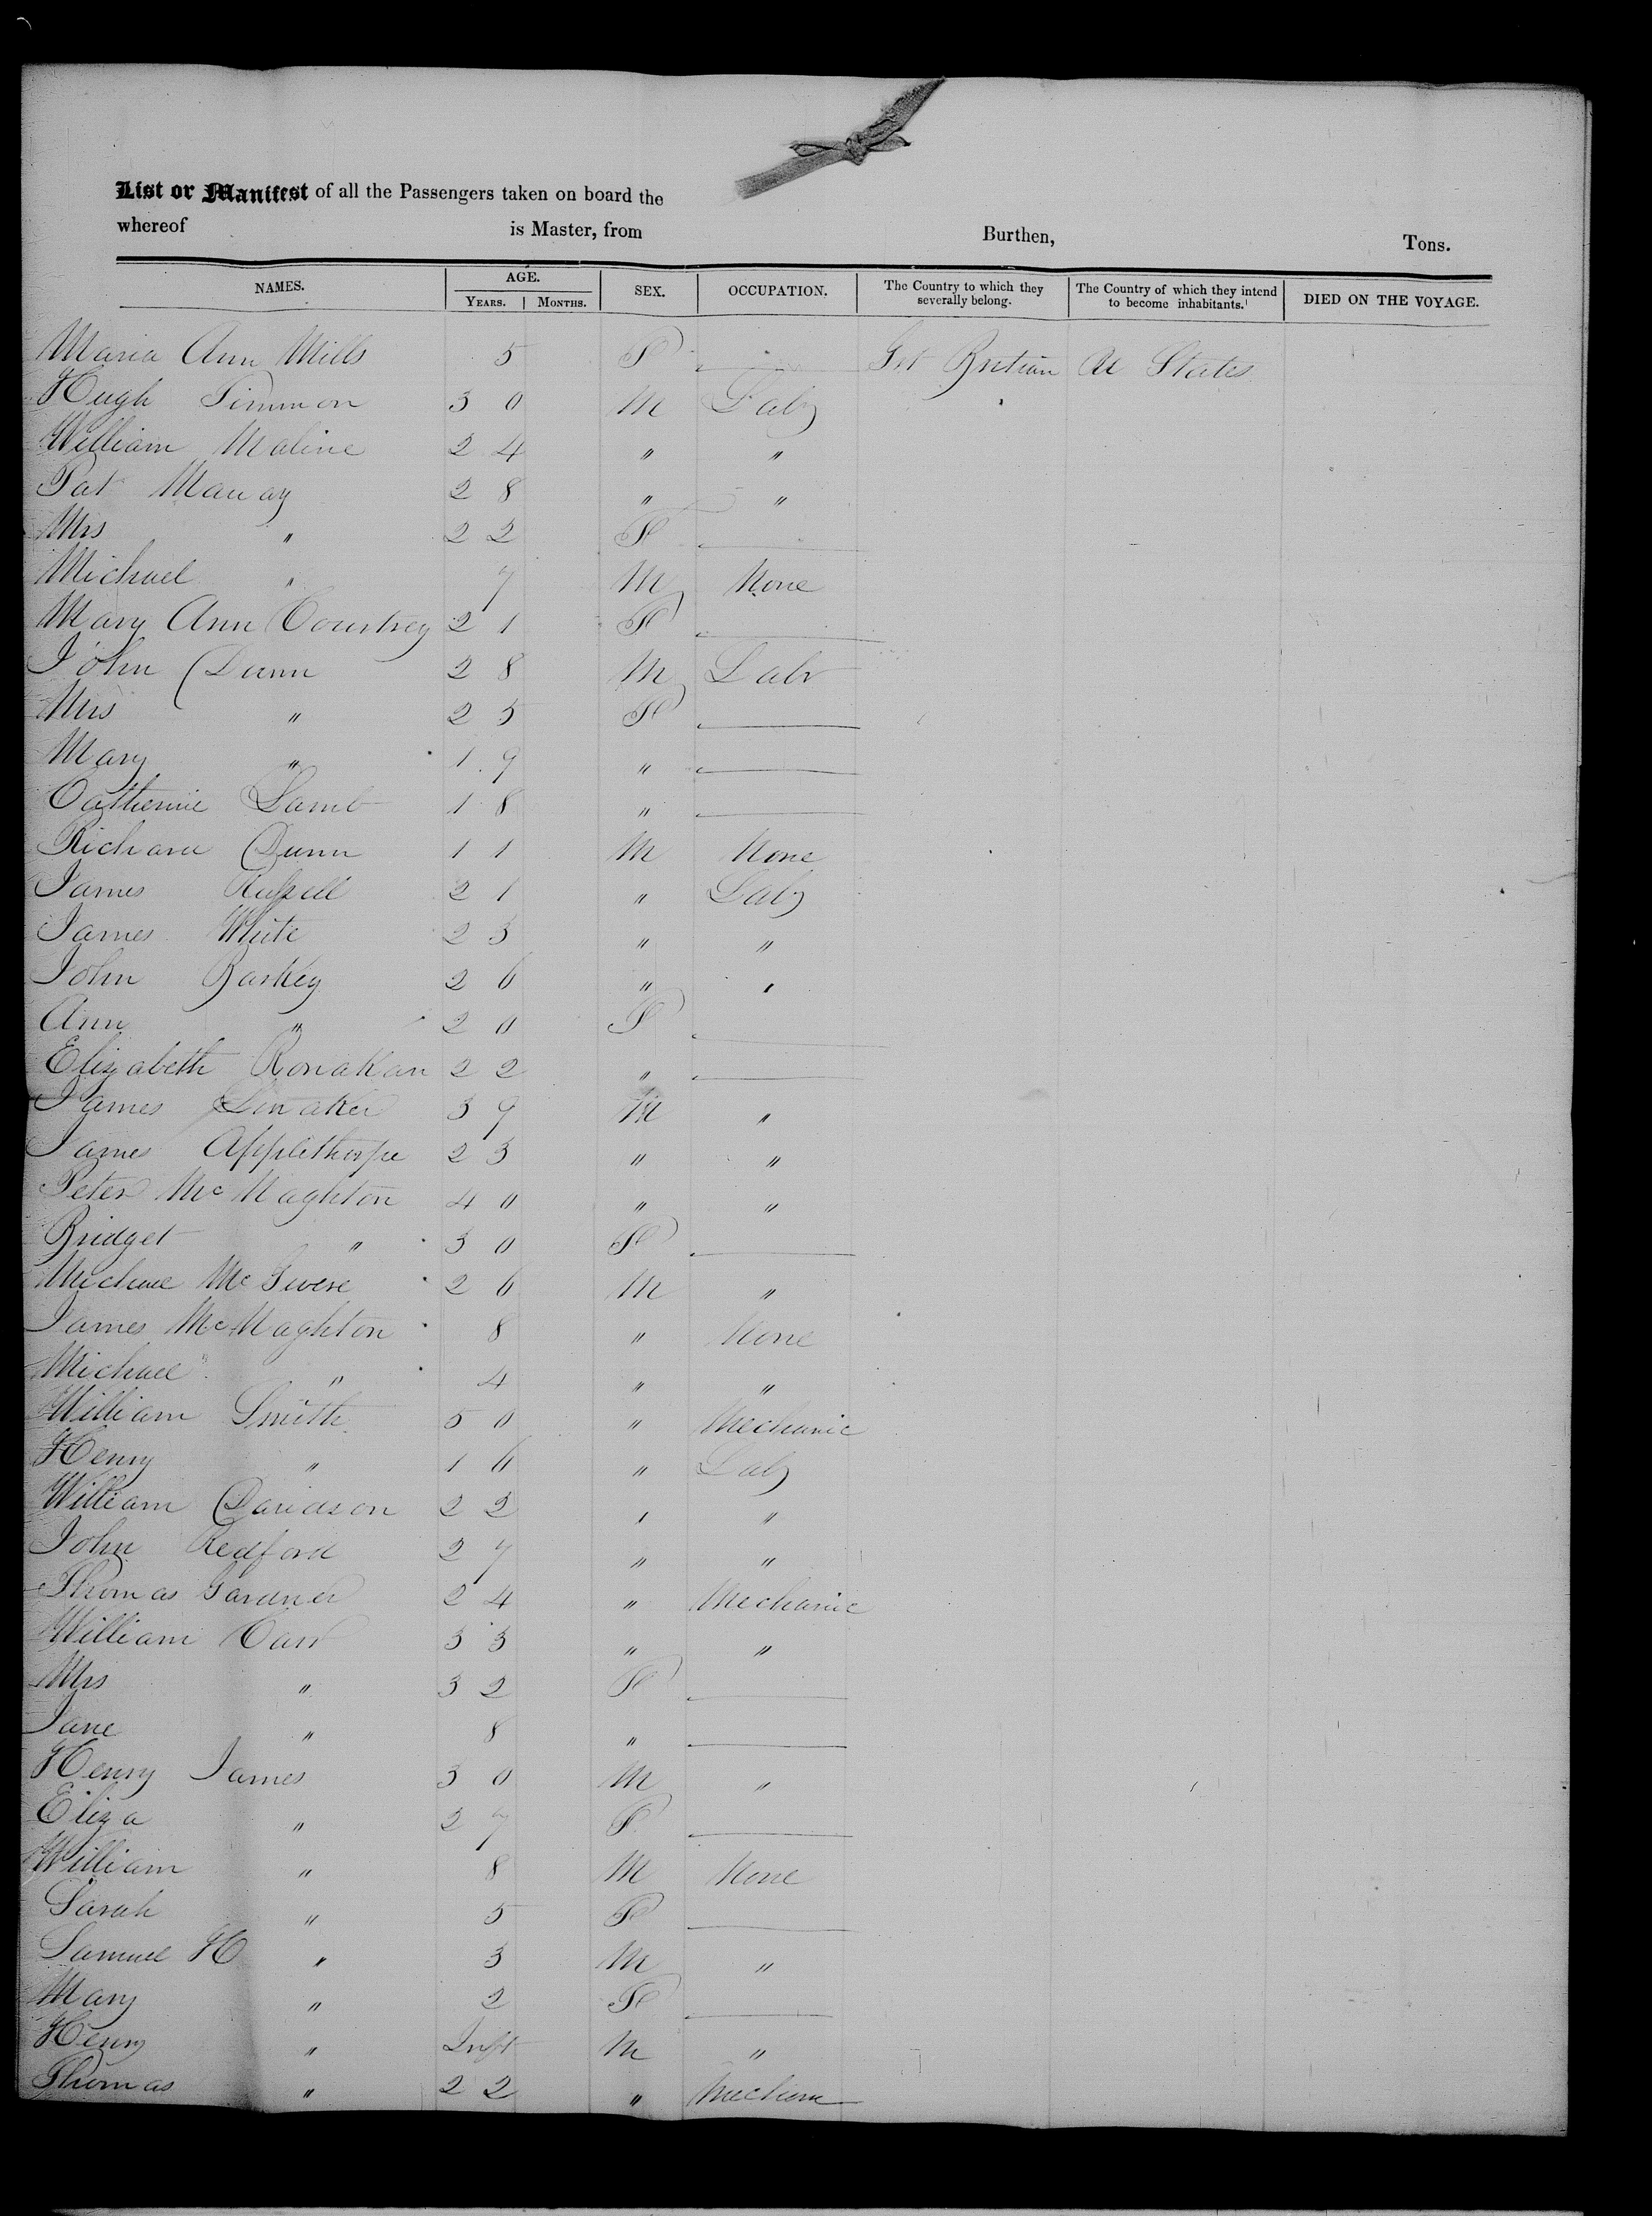 List or Manifest of all the Passengers taken on board the
whereof is Master, from Burthen, Tons.
NAMES. AGE. SEX. OCCUPATION. The Country to which they severally belong. The Country of which they intend to become inhabitants. DIED ON THE VOYAGE.
YEARS. MONTHS.
Maria Ann Mills 5 F — Grt Britian U States
Hugh Simmon 30 M Labr
William Maline 24 " "
Pat 28 " "
Mrs " 22 F —
Michael " 7 M None
Mary Ann Courtney 21 F —
John Dunn 28 M Labr
Mrs " 25 F —
Mary " 19 " —
Catherine Lamb 18 " —
Richard Dunn 11 M None
James Russell 21 " Labr
James White 23 " "
John Barkey 26 " "
Ann " 20 F —
Elizabeth Ronakan 22 " —
James Linaker 39 M "
James Applethorpe 23 " "
Peter McNaghton 40 " "
Bridget " 30 F —
Michael 26 M "
James McNaghton 8 " None
Michael " 4 " "
William Smith 50 " Mechanic
Henry " 16 " Labr
William Davidson 22 " "
John Redford 27 " "
Thomas Gardner 24 " Mechanic
William Carr 33 " "
Mrs " 32 F —
Jane " 8 " —
Henry James 30 M "
Eliza " 27 F —
William " 8 M None
Sarah " 5 F —
Samuel H " 3 M "
Mary " 2 F —
Henry " Inft M "
Thomas " 22 " Mechanic